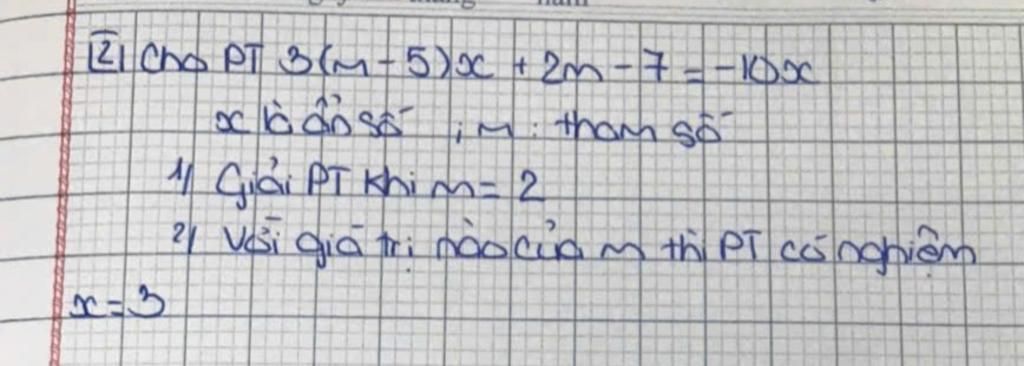 [2] Cho PT 3(m - 5)x + 2m - 7 = -10x
x là ẩn số ; m : tham số
1) Giải PT khi m = 2
2) Với giá trị nào của m thì PT có nghiệm
x = 3